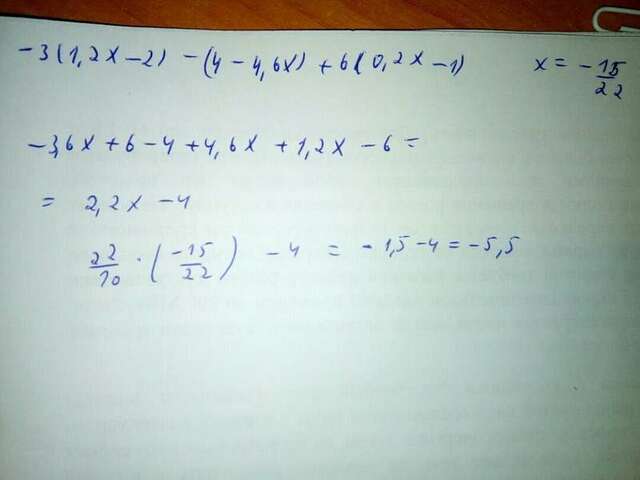 -3(1,2x-2) -(4-4,6x) +6(0,2x-1) x=-15/22
-3,6x+6-4+4,6x+1,2x-6=
= 2,2x-4
22/10 · (-15/22) -4 = -1,5-4=-5,5